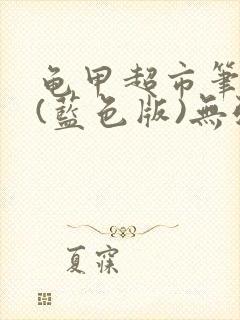 龟甲超市筆
(藍色版)無
夏寐